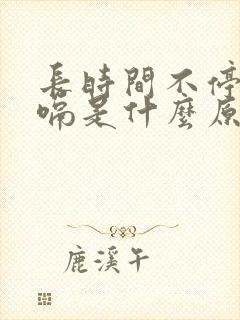 長時間不停
嗝是什麼原
鹿溪午